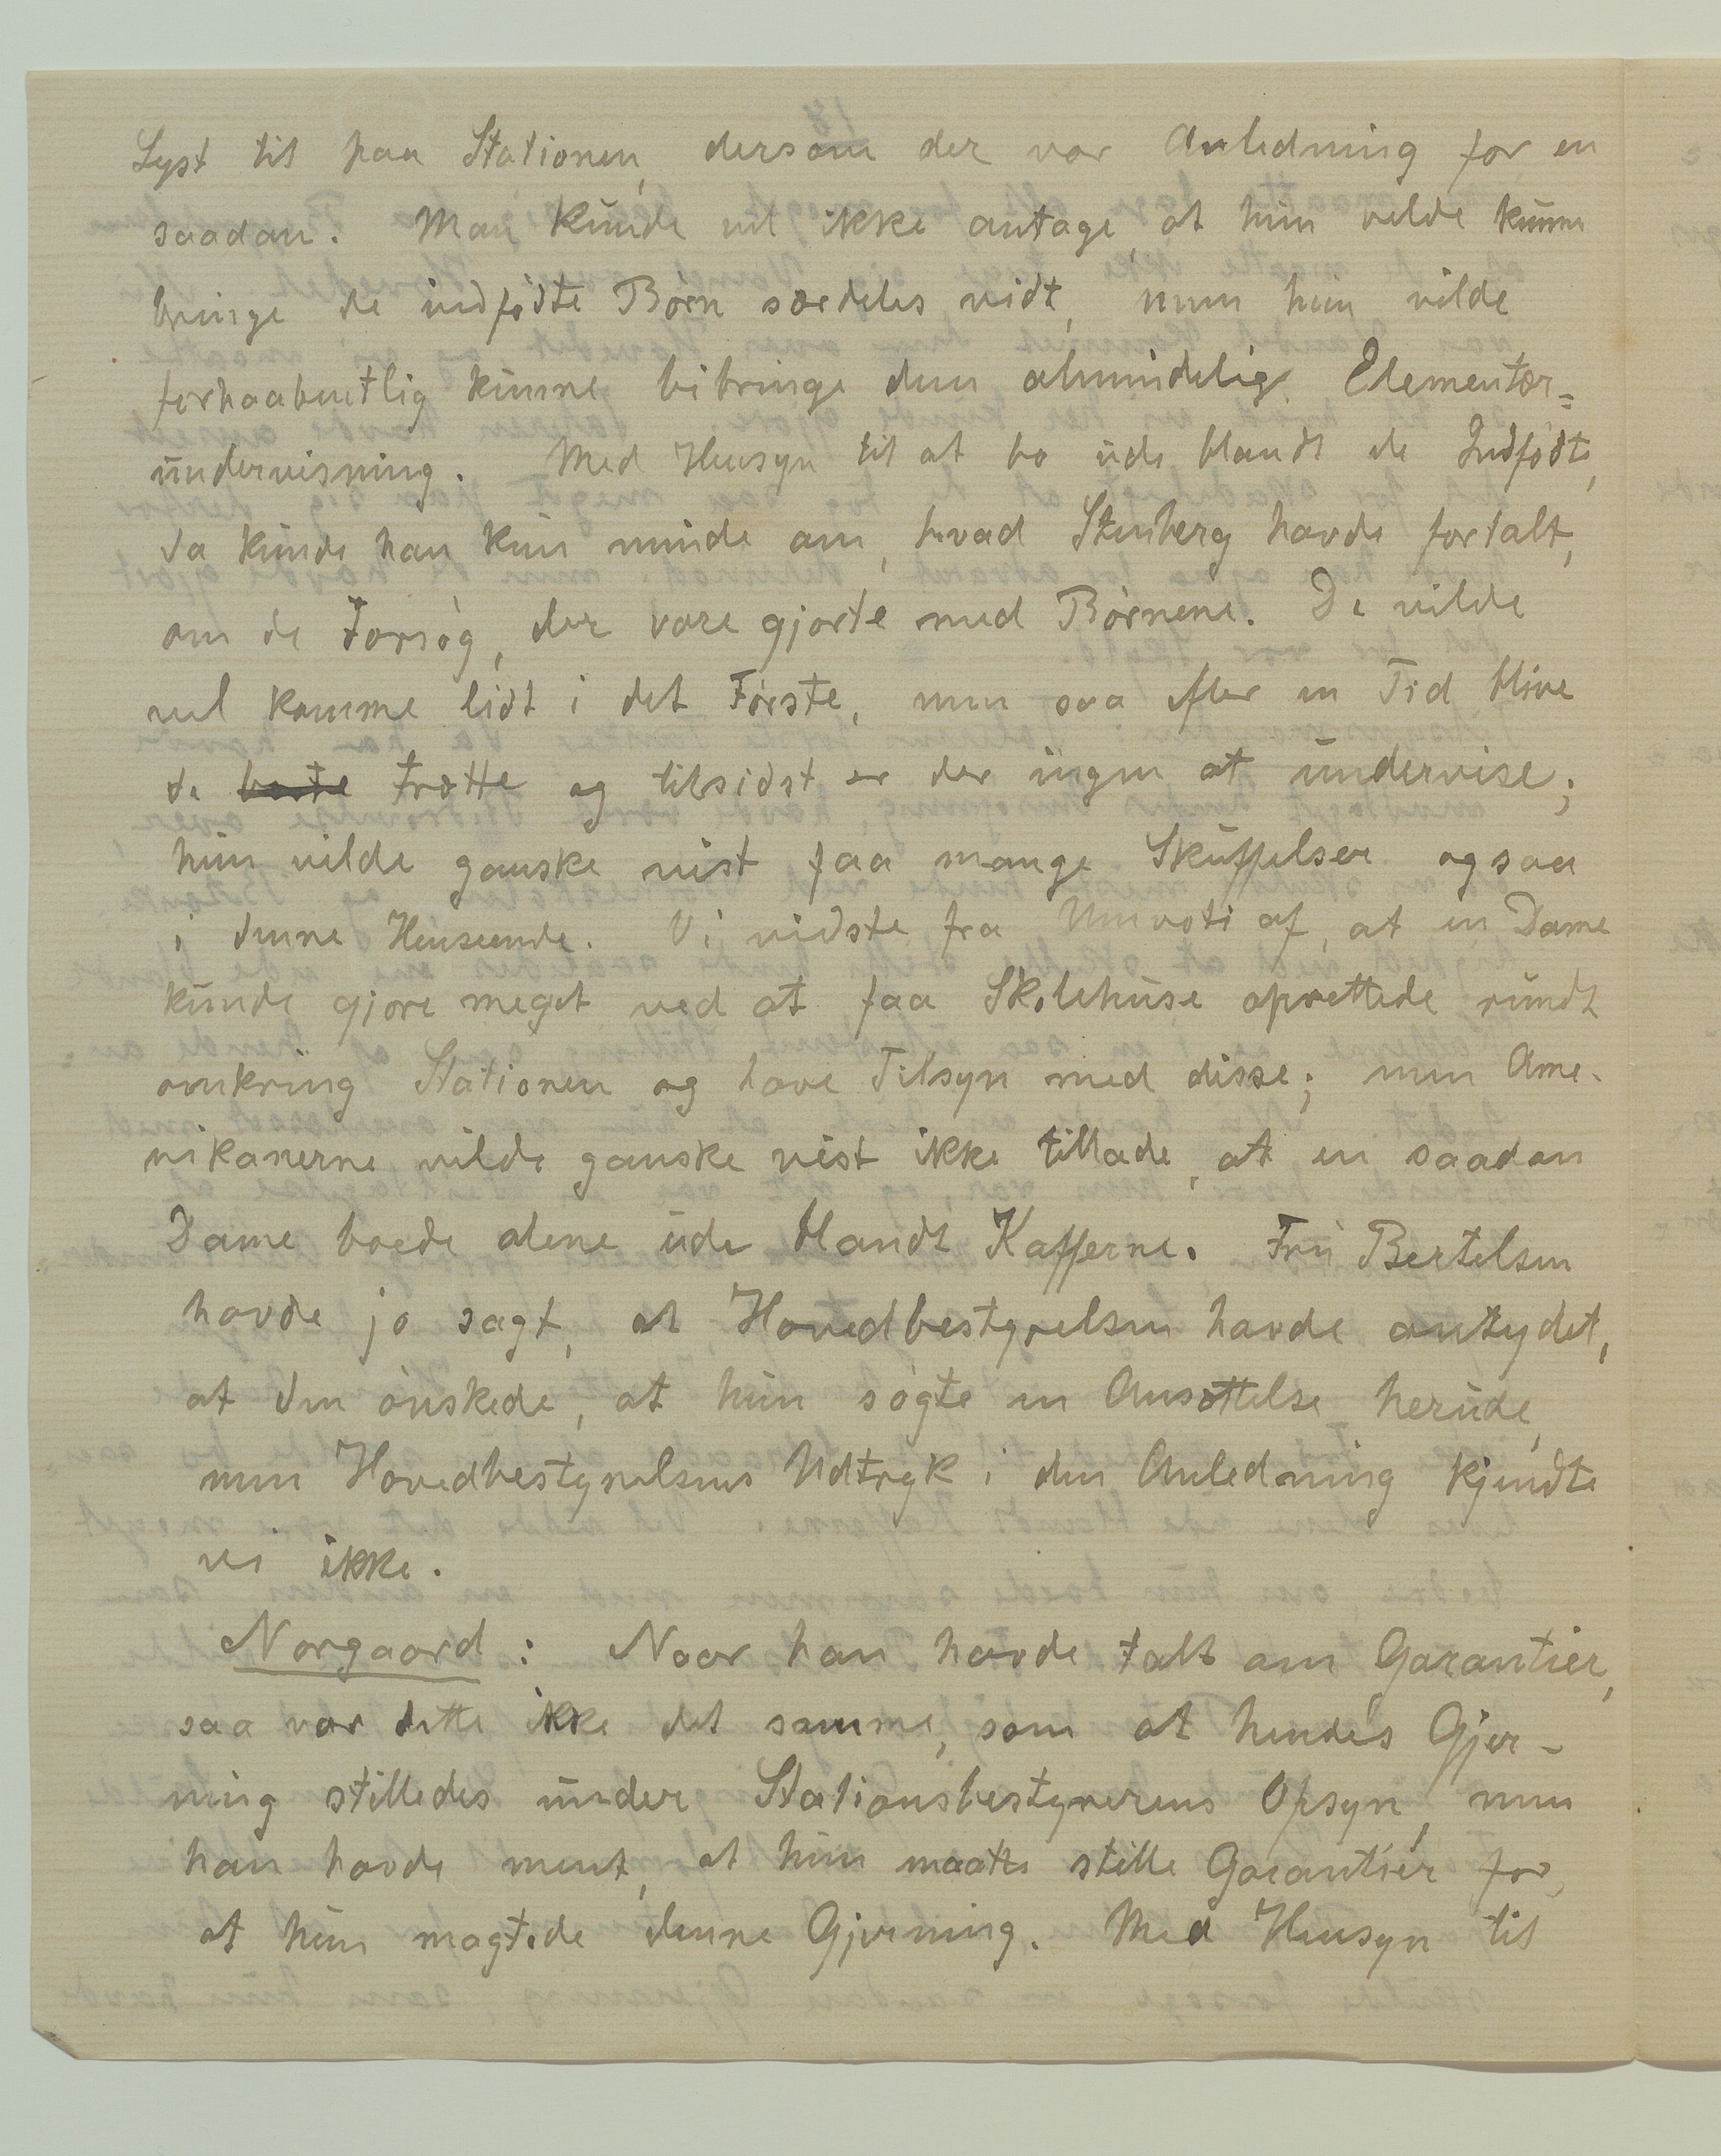 Lyst til paa Stationen, dersom der var Anledning for en
saadan. Man kunde vel ikke antage, at hun vilde kunne
bringe de indfødte Børn særdeles vidt, men hun vilde
forhaabentlig kunne bibringe dem almindelig Elementær=
undervisning. Med Hensyn til at bo ude blandt de Indfødte,
da kunde han kun minde om, hvad Stenberg havde fortalt,
om de Forsøg, der vare gjorte med Børnene. De vilde
vel komme lidt i det Første, men saa efter en Tid blive
de trætte og tilsidst er der ingen at undervise;
hun vilde ganske vist faa mange Skuffelser ogsaa
i denne Henseende. Vi vidste fra Umvoti af, at en Dame
kunde gjøre meget ved at faa Skolehuse oprettede rundt
omkring Stationen og have Tilsyn med disse; men Ame-
rikanerne vilde ganske vist ikke tillade, at en saadan
Dame boede alene ude blandt Kafferne. Fru Bertelsen
havde jo sagt, at Hovedbestyrelsen havde antydet,
at den ønskede, at hun søgte en Ansættelse herude,
men Hovedbestyrelsens Udtryk i den Anledning kjendte
vi ikke.
Norgaard: Naar han havde talt om Garantier,
saa var dette ikke det samme, som at hendes Gjer-
ning stilledes under Stationsbestyrerens Opsyn, men
han havde ment, at hun maatte stille Garantier for,
at hun magtede denne Gjerning. Med Hensyn til